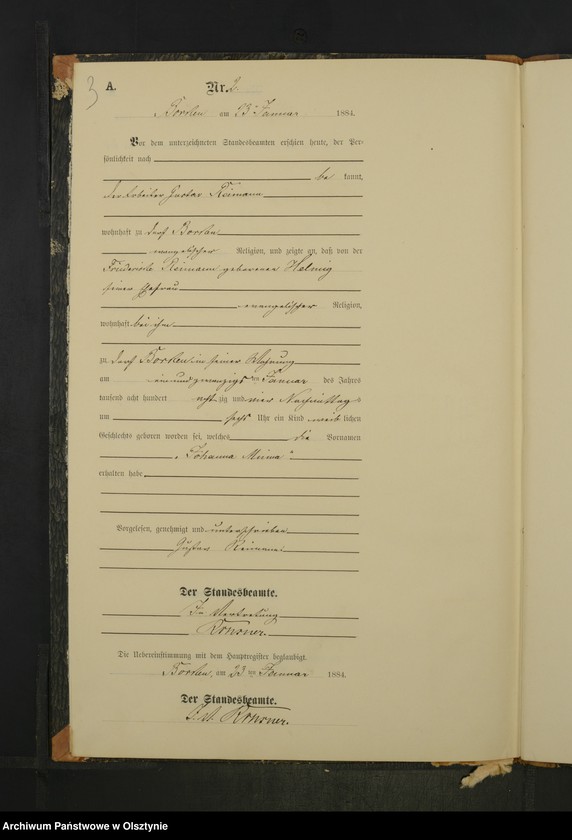 3
A.
Nr. 2.
Borken am 23 Januar 1884.
Vor dem unterzeichneten Standesbeamten erschien heute, der Per-
sönlichkeit nach
be kannt,
der Arbeiter Gustav Reimann
wohnhaft zu Dorf Borken
evangelischer Religion, und zeigte an, daß von der
Friederike Reimann geborenen Helmig
seiner Ehefrau
evangelischer Religion,
wohnhaft bei ihm
zu Dorf Borken in seiner Wohnung
am ein und zwanzigsten Januar des Jahres
tausend acht hundert acht zig und vier Nachmittags
um sechs Uhr ein Kind weib lichen
Geschlechts geboren worden sei, welches die Vornamen
"Johanna Minna"
erhalten habe
Vorgelesen, genehmigt und unterschrieben
Gustav Reimann
Der Standesbeamte.
In Vertretung
Die Uebereinstimmung mit dem Hauptregister beglaubigt.
Borken, am 23 ten Januar 1884.
Der Standesbeamte.
Archiwum Państwowe w Olsztynie
Archiwum Państwowe w Olsztynie